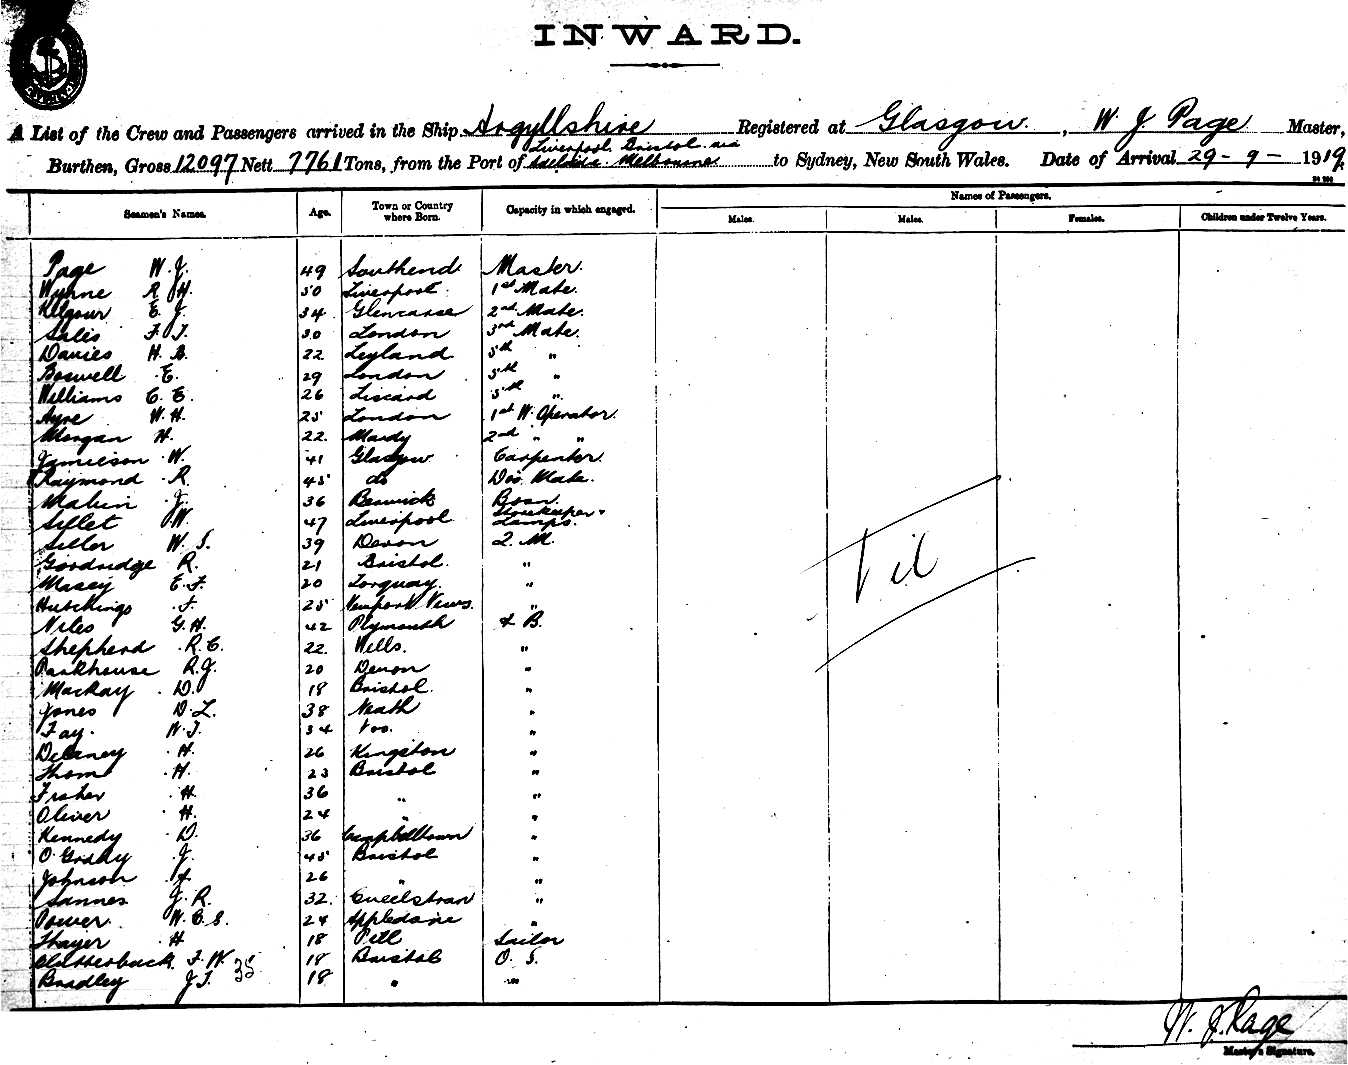 INWARD.
A List of the Crew and Passengers arrived in the Ship Argyllshire Registered at Glasgow, W. J. Page Master,
Liverpool Bristol via
Burthen, Gross 12097 Nett 7761 Tons, from the Port of Adelaide Melbourne to Sydney, New South Wales. Date of Arrival 29-9-1919
Seamen's Names. Age. Town or Country where Born. Capacity in which engaged. Names of Passengers.
Males. Males. Females. Children under Twelve Years.
Page W. J. 49 Southend Master.
Wynne R H. 50 Liverpool 1st Mate.
Kilgour E. J. 34 2nd Mate.
Sales F. T. 30 London 3rd Mate.
Davies H. B. 22 Leyland 5th "
Boswell E. 29 London 5th "
Williams C. E. 26 Liscard 5th "
Ayre W. H. 25 London 1st W. Operator.
Morgan H. 22. Mardy 2nd " "
Jamieson W. 41 Glasgow Carpenter.
Raymond R. 45 do Do's. Mate.
Mabin J. 36 Beswick Bosn.
Sillet W. 47 Liverpool Storekeeper Lamps.
Siller W. S. 39 Devon Q. M.
Goodridge R. 21 Bristol. "
Masey E. F. 20 Torquay. "
Hutchings F. 25 Newport "
Niles G. H. 42 Plymouth A B.
Shepherd R. C. 22. Wells. "
Parkhouse R. J. 20 Devon "
Mackay D. 18 Bristol. "
Jones D. L. 38 Neath "
Fay. W. J. 34 "
Delaney H. 26 Kingston "
Thom H. 23 Bristol "
H. 36 " "
Oliver H. 24 " "
Kennedy D. 36 Campbelltown "
O'Grady J. 45 Bristol "
Johnson J. 26 " "
Sannes J. R. 32. "
Power. W. C. S. 24 "
Thayer H 18 Pill Sailor
Clutterbuck F. W. 18 Bristol O. S.
Bradley J. T. 35 18 " "
Nil
W. J. Page
Master's Signature.